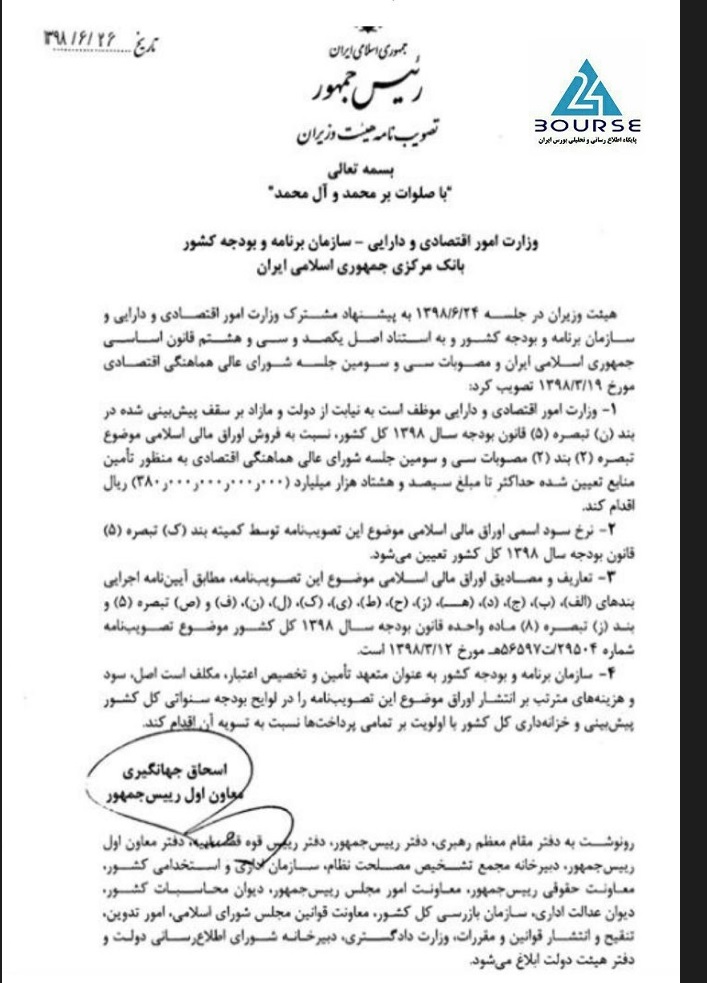 تاریخ ۱۳۹۸/۶/۲۶
جمهوری اسلامی ایران
رئیس جمهور
تصویب نامه هیئت وزیران
24
BOURSE
پایگاه اطلاع رسانی و تحلیلی بورس ایران
بسمه تعالی
"با صلوات بر محمد و آل محمد"
وزارت امور اقتصادی و دارایی - سازمان برنامه و بودجه کشور
بانک مرکزی جمهوری اسلامی ایران
هیئت وزیران در جلسه ۱۳۹۸/۶/۲۴ به پیشنهاد مشترک وزارت امور اقتصادی و دارایی و
سازمان برنامه و بودجه کشور و به استناد اصل یکصد و سی و هشتم قانون اساسی
جمهوری اسلامی ایران و مصوبات سی و سومین جلسه شورای عالی هماهنگی اقتصادی
مورخ ۱۳۹۸/۳/۱۹ تصویب کرد:
۱- وزارت امور اقتصادی و دارایی موظف است به نیابت از دولت و مازاد بر سقف پیش‌بینی شده در
بند (ن) تبصره (۵) قانون بودجه سال ۱۳۹۸ کل کشور، نسبت به فروش اوراق مالی اسلامی موضوع
تبصره (۲) بند (۲) مصوبات سی و سومین جلسه شورای عالی هماهنگی اقتصادی به منظور تأمین
منابع تعیین شده حداکثر تا مبلغ سیصد و هشتاد هزار میلیارد (۳۸۰٫۰۰۰٫۰۰۰٫۰۰۰٫۰۰۰) ریال
اقدام کند.
۲- نرخ سود اسمی اوراق مالی اسلامی موضوع این تصویب‌نامه توسط کمیته بند (ک) تبصره (۵)
قانون بودجه سال ۱۳۹۸ کل کشور تعیین می‌شود.
۳- تعاریف و مصادیق اوراق مالی اسلامی موضوع این تصویب‌نامه، مطابق آیین‌نامه اجرایی
بندهای (الف)، (ب)، (ج)، (د)، (هـ)، (ز)، (ح)، (ط)، (ی)، (ک)، (ل)، (ن)، (ف) و (ص) تبصره (۵) و
بند (ز) تبصره (۸) ماده واحده قانون بودجه سال ۱۳۹۸ کل کشور موضوع تصویب‌نامه
شماره ۲۹۵۰۴/ت۵۶۵۹۷هـ مورخ ۱۳۹۸/۳/۱۲ است.
۴- سازمان برنامه و بودجه کشور به عنوان متعهد تأمین و تخصیص اعتبار، مکلف است اصل، سود
و هزینه‌های مترتب بر انتشار اوراق موضوع این تصویب‌نامه را در لوایح بودجه سنواتی کل کشور
پیش‌بینی و خزانه‌داری کل کشور با اولویت بر تمامی پرداخت‌ها نسبت به تسویه آن اقدام کند.
اسحاق جهانگیری
معاون اول رییس‌جمهور
رونوشت به دفتر مقام معظم رهبری، دفتر رییس‌جمهور، دفتر رییس قوه قضاییه، دفتر معاون اول
رییس‌جمهور، دبیرخانه مجمع تشخیص مصلحت نظام، سازمان اداری و استخدامی کشور،
معاونت حقوقی رییس‌جمهور، معاونت امور مجلس رییس‌جمهور، دیوان محاسبات کشور،
دیوان عدالت اداری، سازمان بازرسی کل کشور، معاونت قوانین مجلس شورای اسلامی، امور تدوین،
تنقیح و انتشار قوانین و مقررات، وزارت دادگستری، دبیرخانه شورای اطلاع‌رسانی دولت و
دفتر هیئت دولت ابلاغ می‌شود.